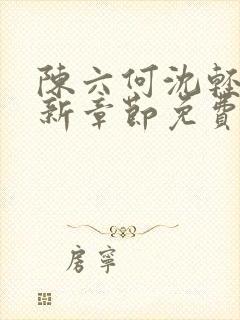 陳六何沈輕
新章節免費
房寧